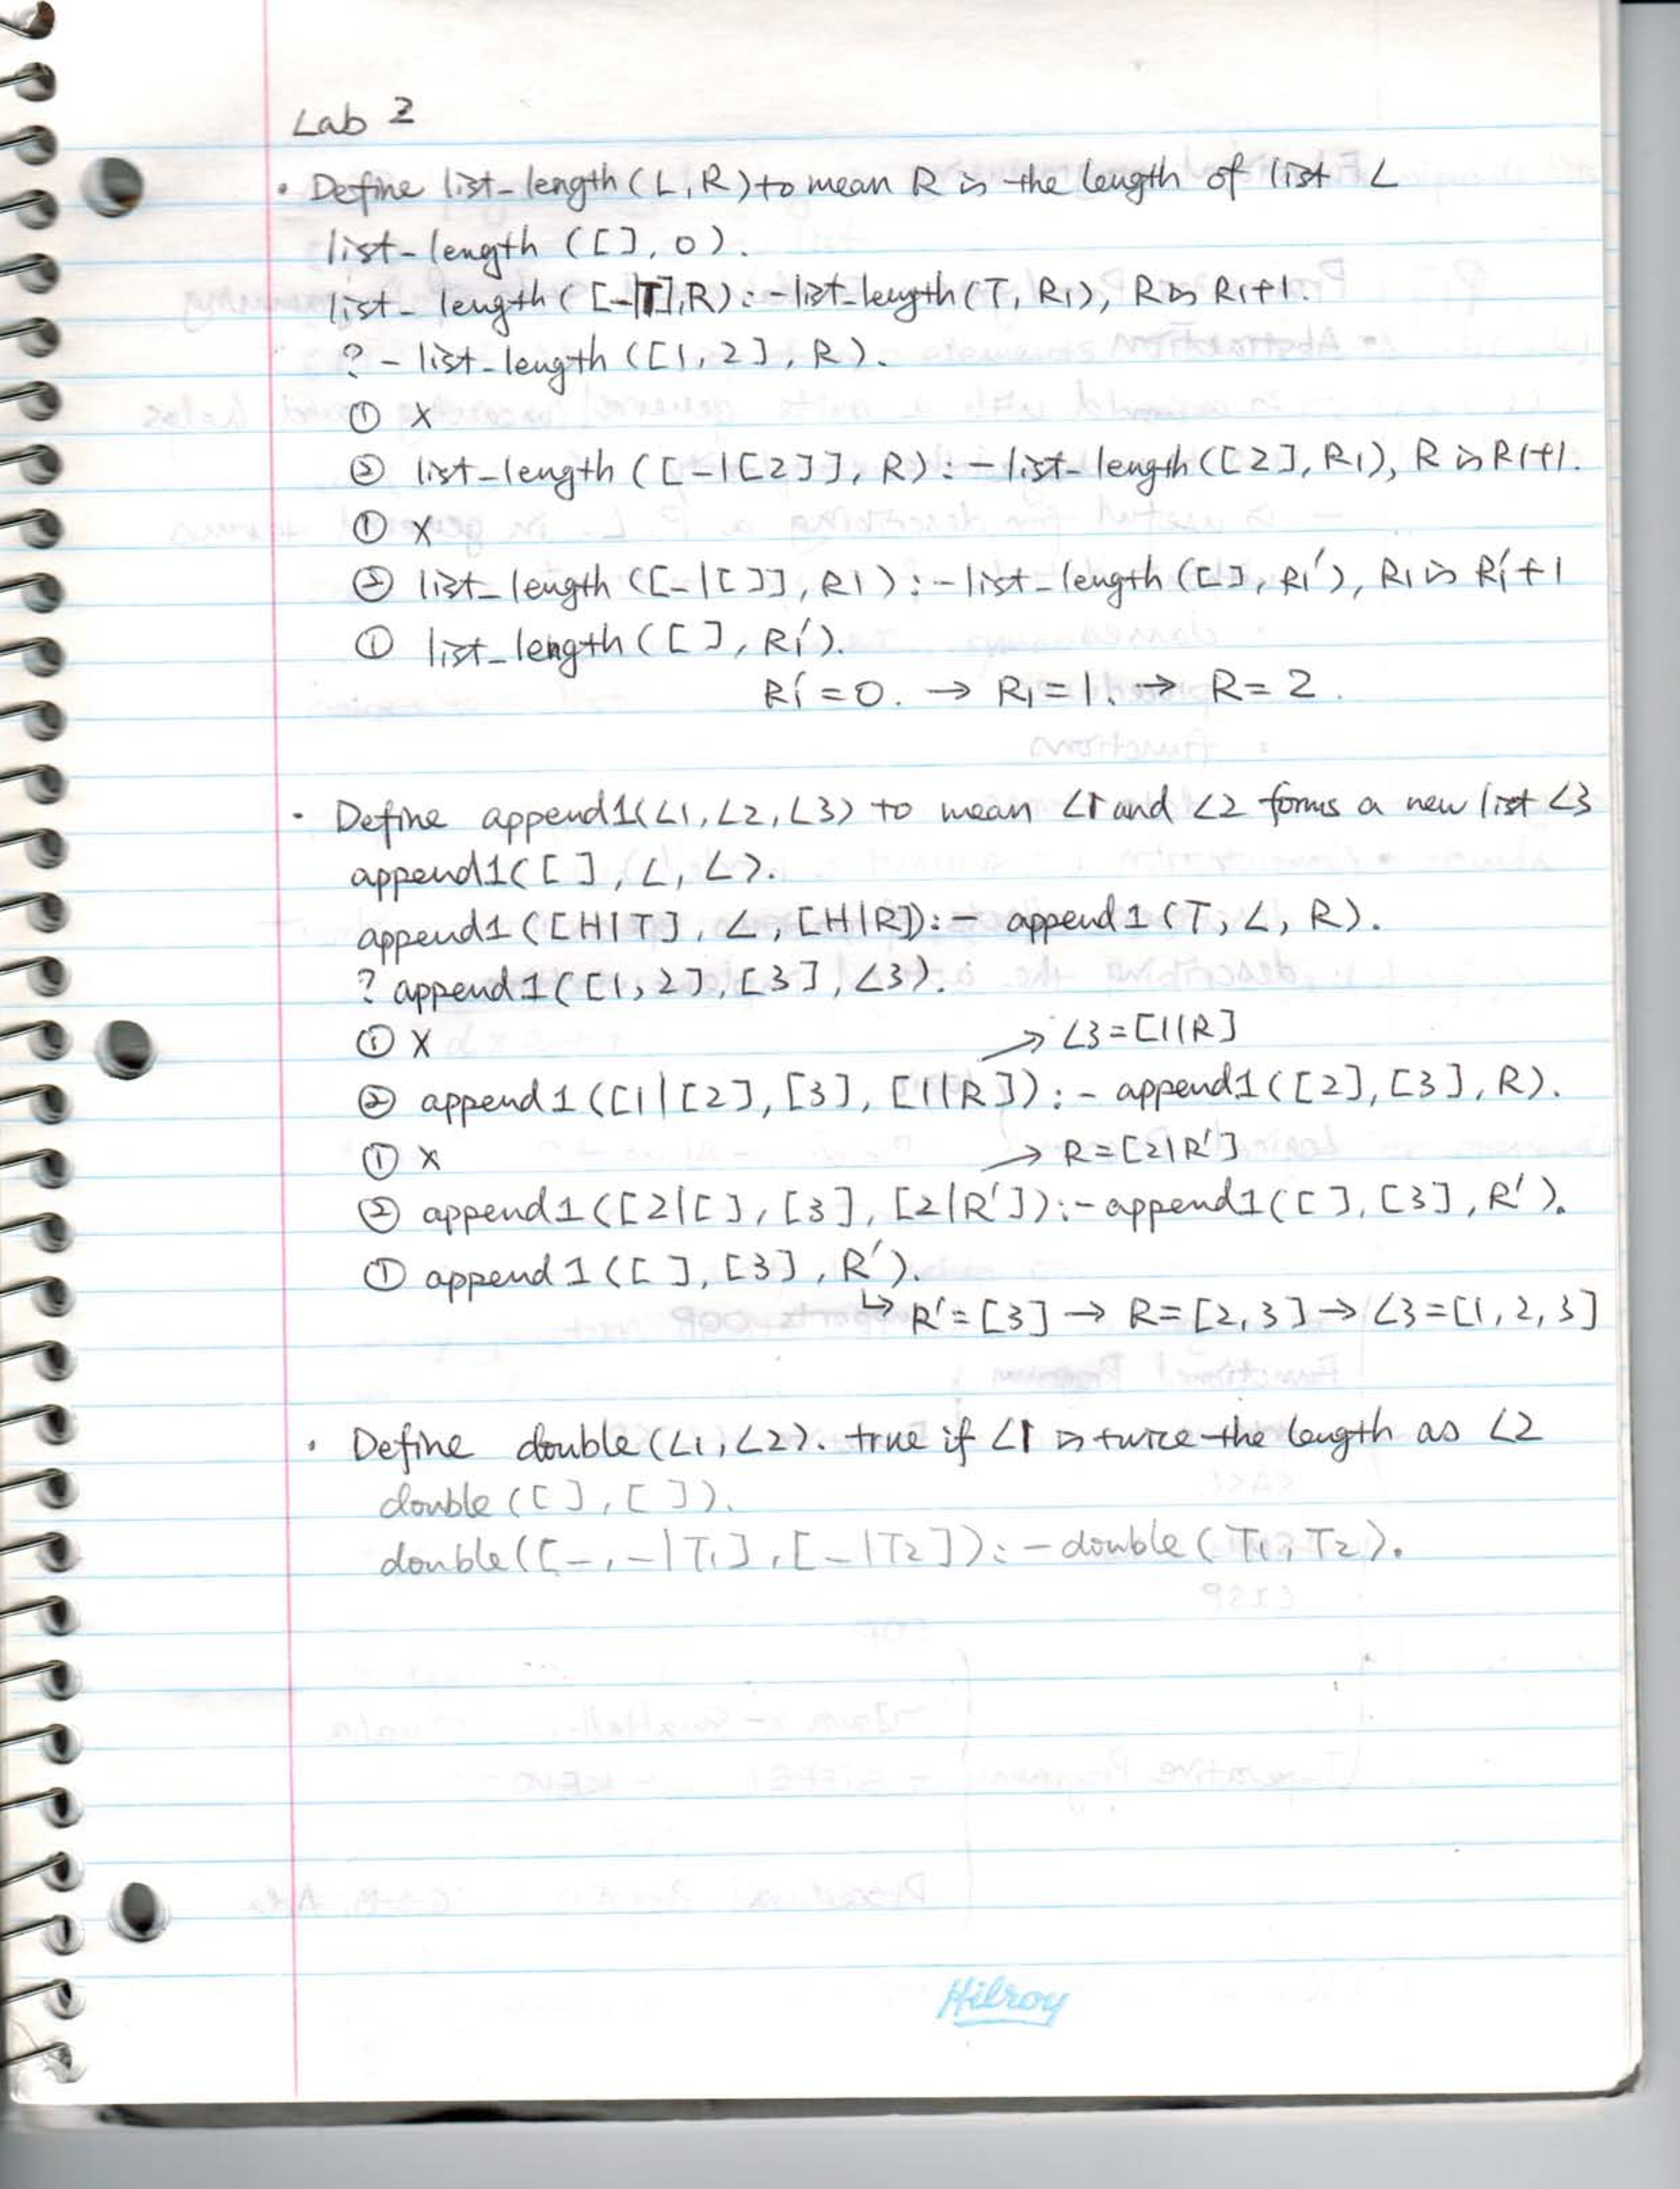 Lab 2
• Define list-length(L,R) to mean R is the length of list L
list-length([],0).
list-length([-|T],R):-list-length(T,R1), R is R1+1.
?-list-length([1,2],R).
① X
② list-length([-|[2]],R):-list-length([2],R1), R is R1+1.
① X
② list_length([-|[]],R1):-list_length([],R1'), R1 is R1'+1
① list_length([],R1').
R1'=0. → R1=1. → R=2.
• Define append1(L1,L2,L3) to mean L1 and L2 forms a new list L3
append1([],L,L).
append1([H|T],L,[H|R]):- append1(T,L,R).
? append1([1,2],[3],L3).
① X
→ L3=[1|R]
② append1([1|[2],[3],[1|R]):- append1([2],[3],R).
① X
→ R=[2|R']
② append1([2|[],[3],[2|R']):-append1([],[3],R').
① append1([],[3],R').
↳ R'=[3] → R=[2,3] → L3=[1,2,3]
• Define double(L1,L2). true if L1 is twice the length as L2
double([],[]).
double([_,_|T1],[_|T2]):-double(T1,T2).
Hilroy